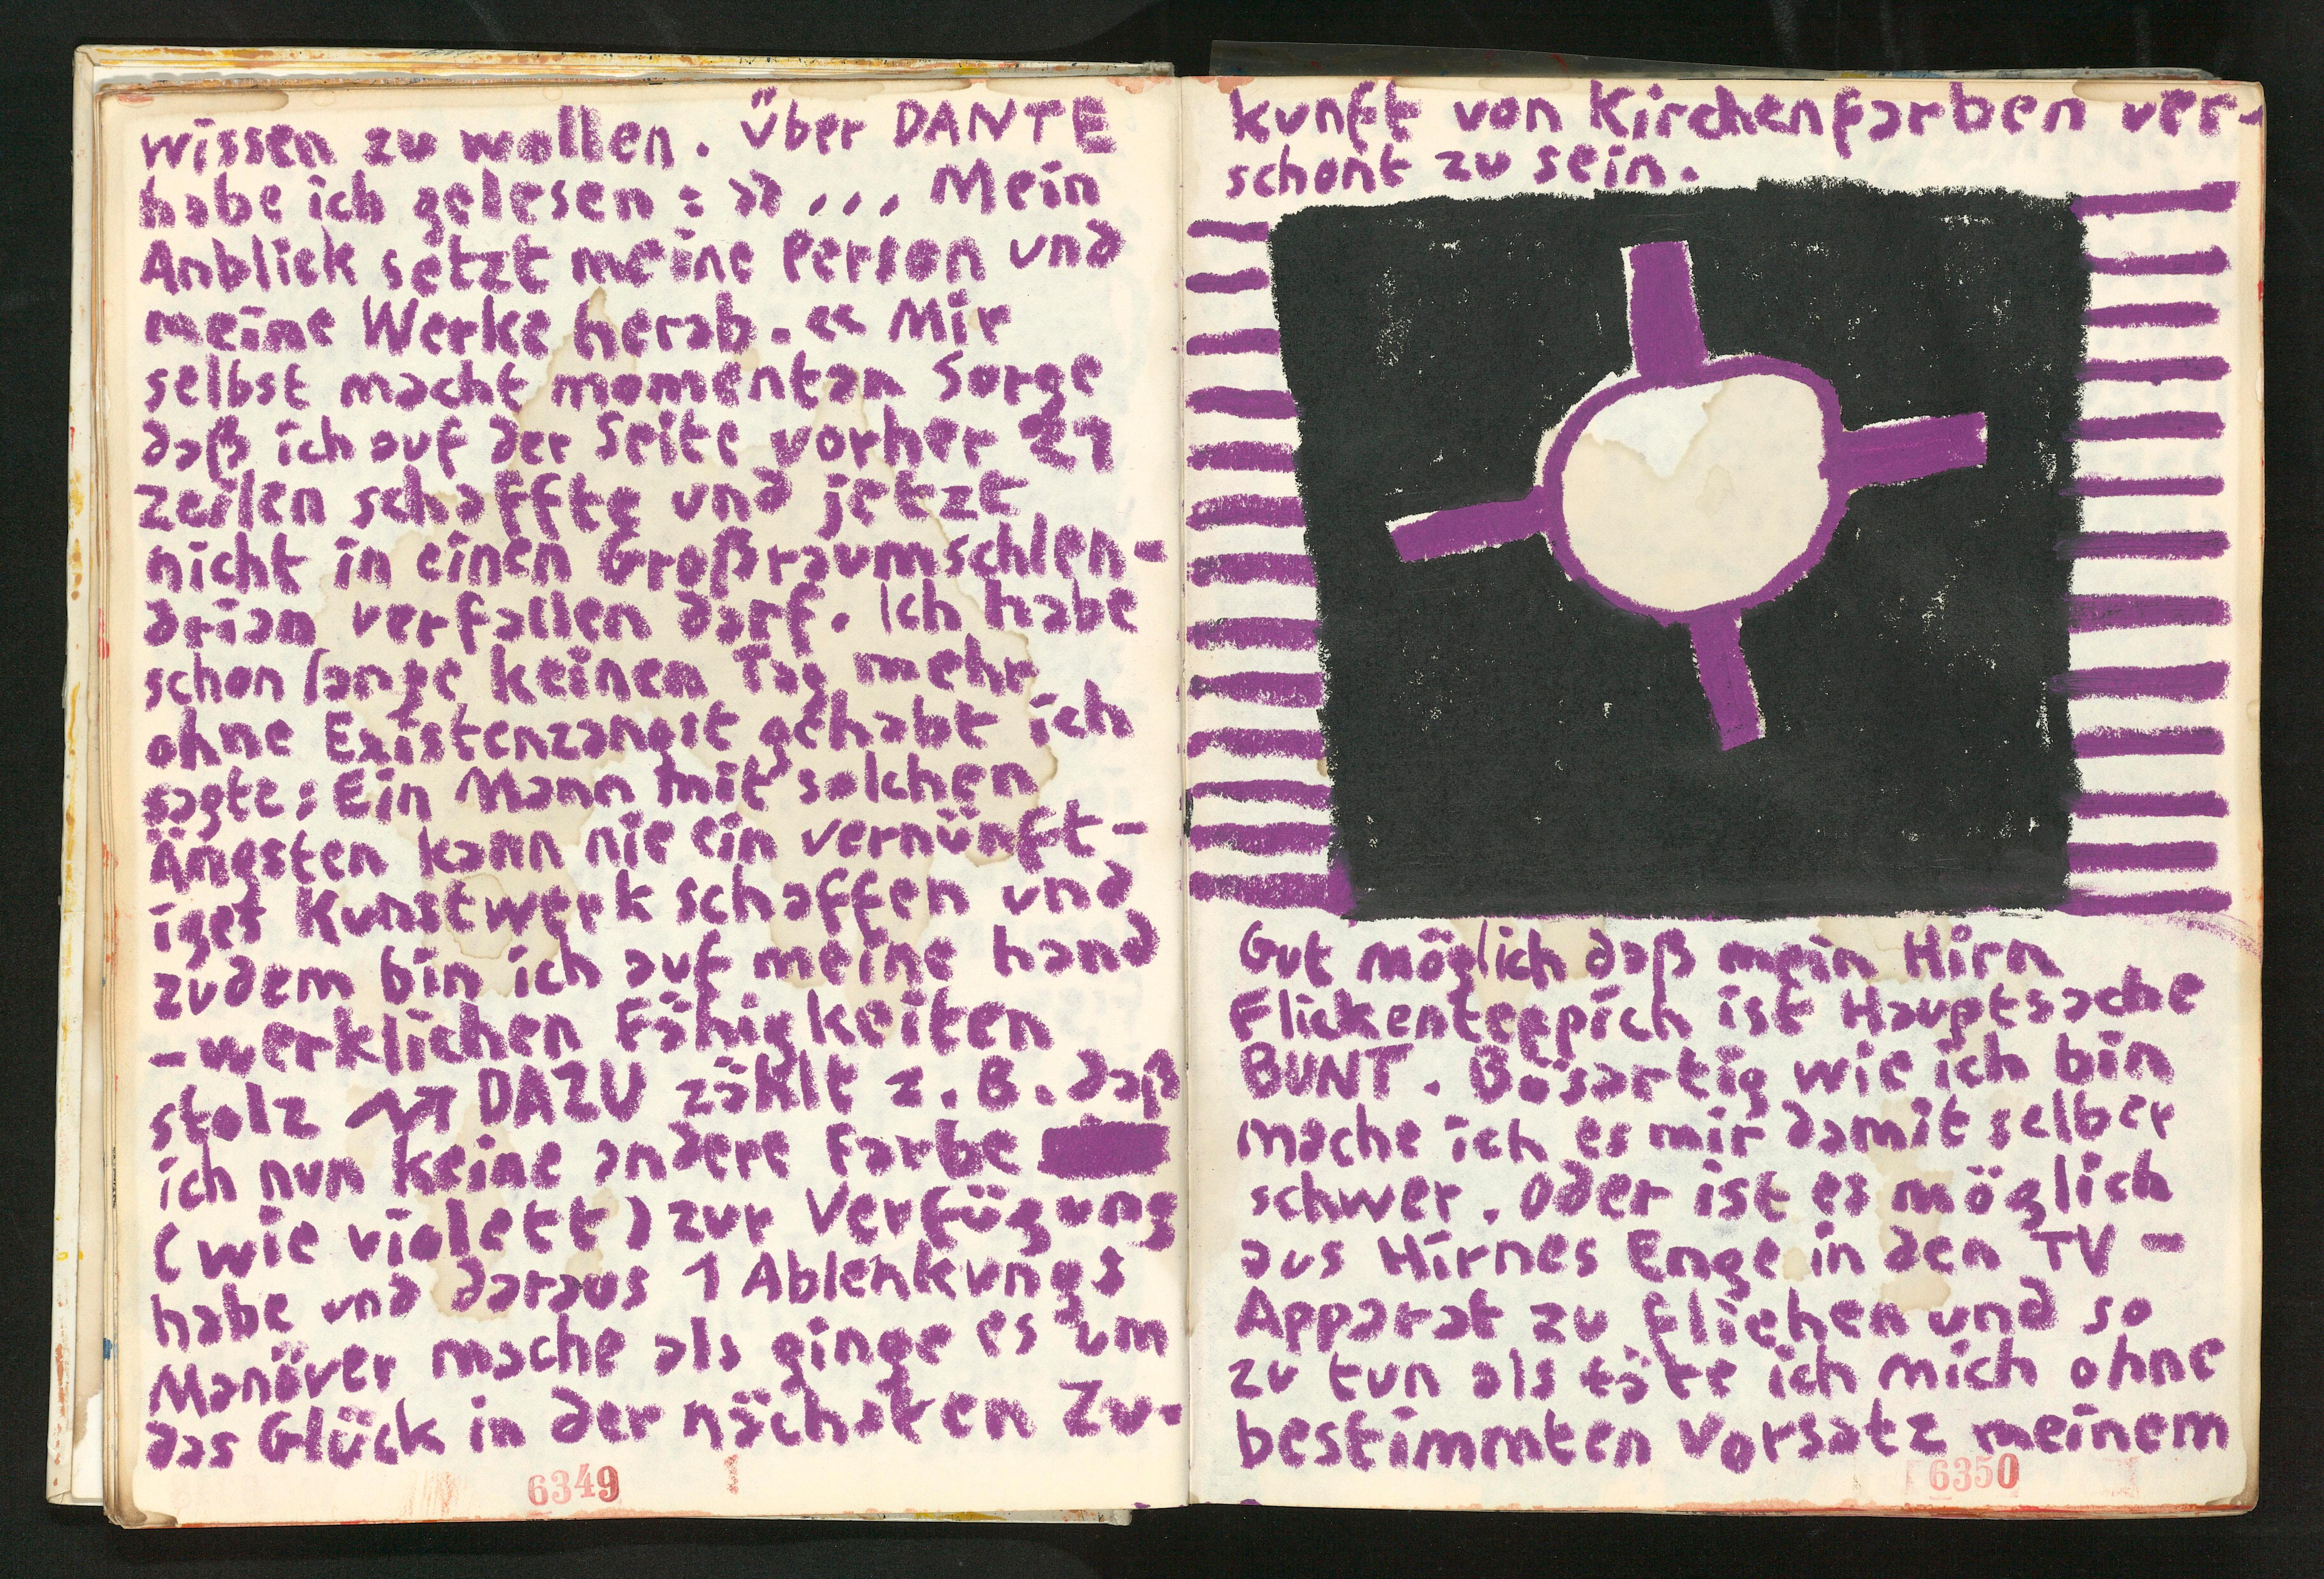 wissen zu wollen. über DANTE
habe ich gelesen: »... Mein
Anblick setzt meine Person und
meine Werke herab. « Mir
selbst macht momentan Sorge
daß ich auf der Seite vorher 21
zeilen schaffte und jetzt
nicht in einen Großraumschlen-
drian verfallen darf. Ich habe
schon lange keinen Tag mehr
ohne Existenzangst gehabt ich
sagte: Ein Mann mit solchen
Ängsten kann nie ein vernünft-
iges Kunstwerk schaffen und
zudem bin ich auf meine hand
-werklichen Fähigkeiten
stolz DAZU zählt z.B. daß
ich nun keine andere Farbe
(wie violett) zur Verfügung
habe und daraus 1 Ablenkungs
Manöver mache als ginge es um
das Glück in der nächsten Zu-
6349 1
kunft von Kirchenfarben ver-
schont zu sein.
Gut möglich daß mein Hirn
Flickenteppich ist Hauptsache
BUNT. Bösartig wie ich bin
mache ich es mir damit selber
schwer. Oder ist es möglich
aus Hirnes Enge in den TV-
Apparat zu fliehen und so
zu tun als täte ich mich ohne
bestimmten Vorsatz meinem
6350